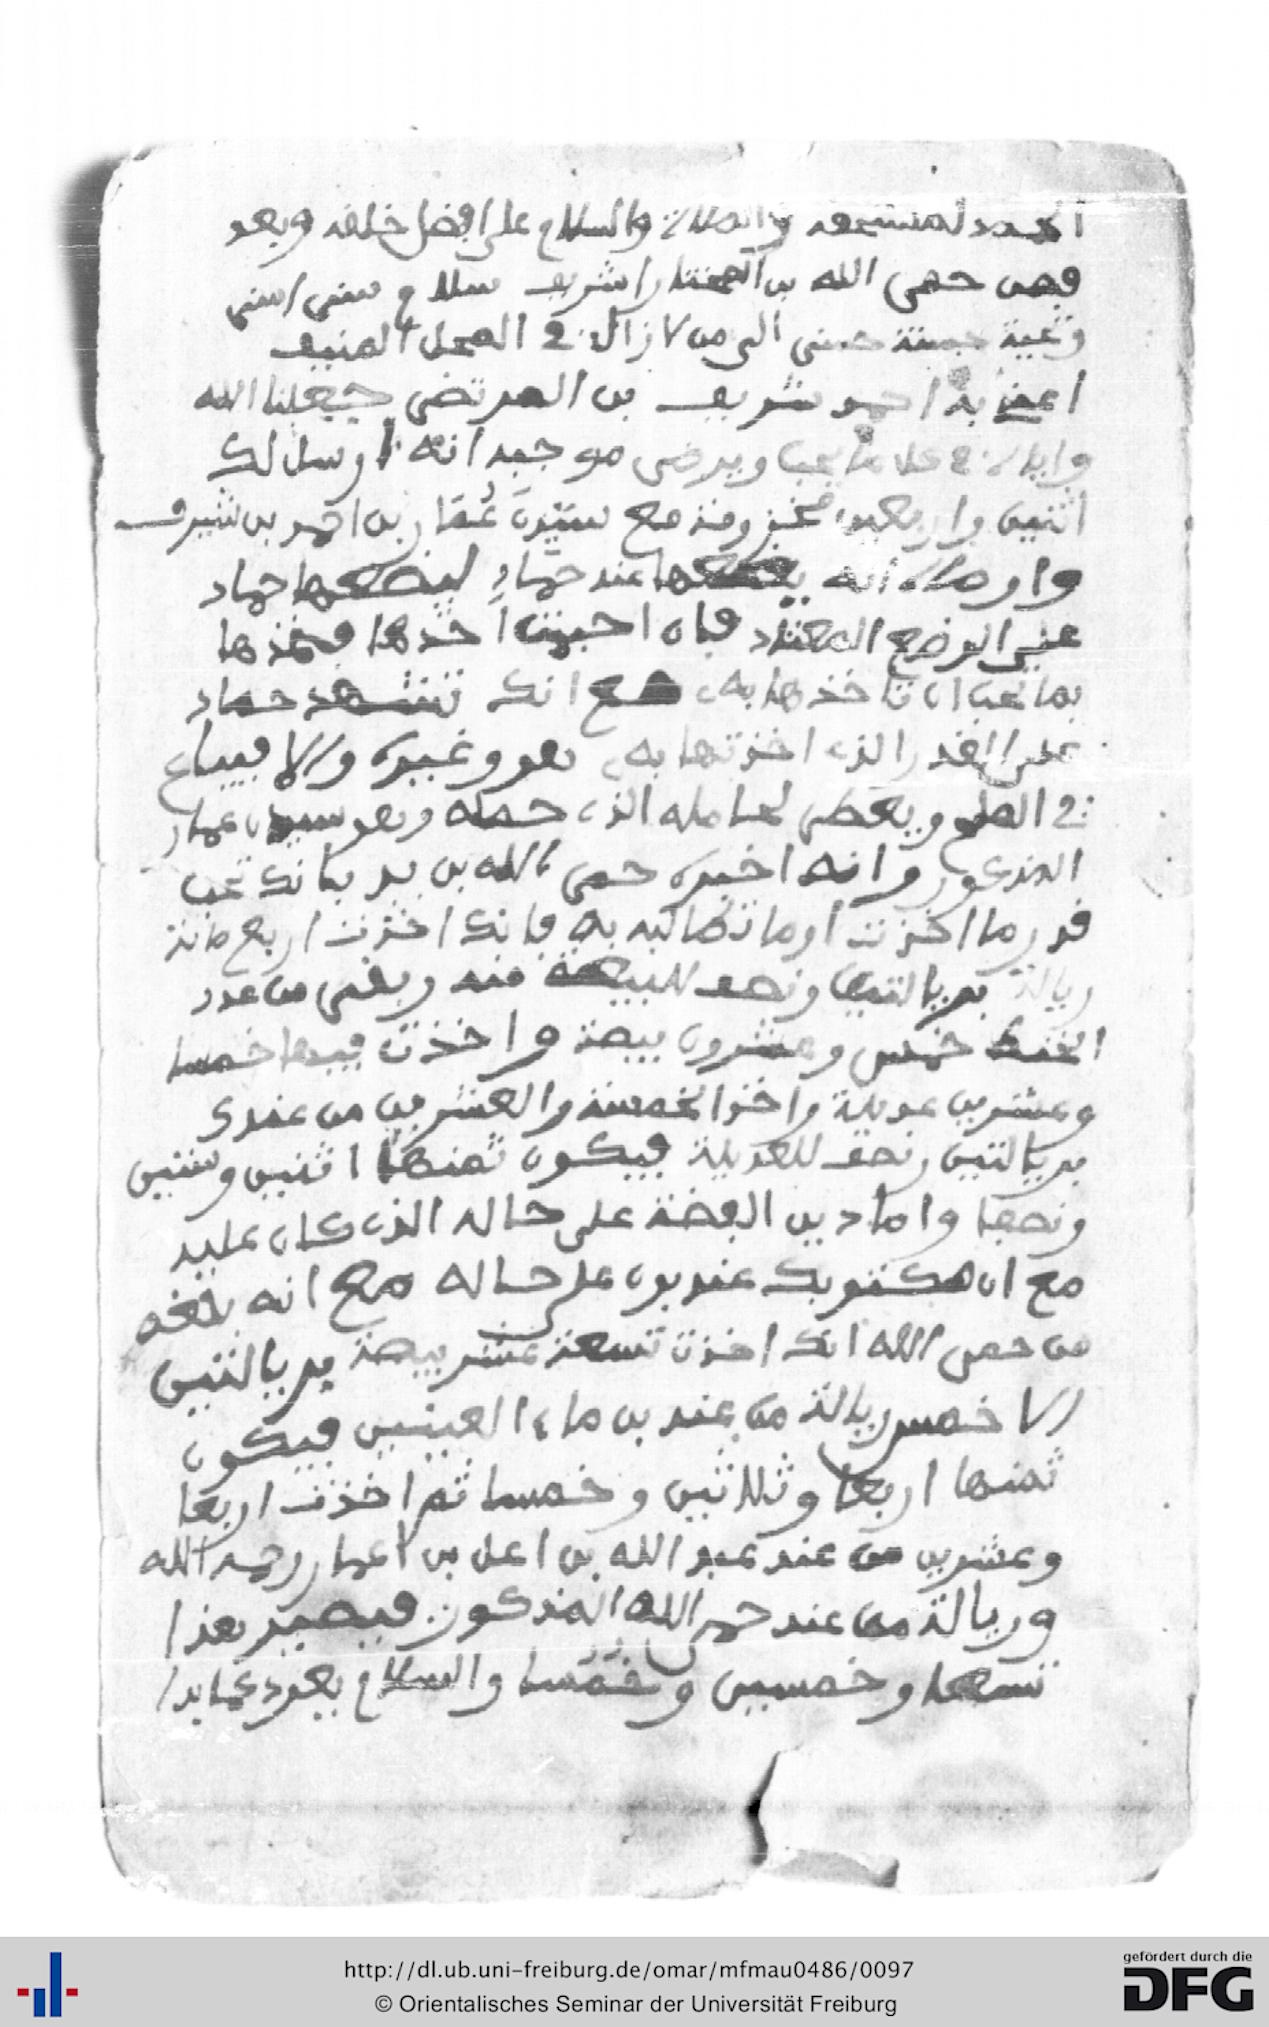 الحمد لمستحقه والصلاة والسلام على افضل خلقه وبعد
فمن حمى الله بن المختار اشريف سلام سني اسنى
وتحية حسنة حسنى الى من لا زال في المحل المنيف
اعني به احمد شريف بن المرتضى جعلنا الله
واياه في ما يحب ويرضى موجبه انه ارسل لك
اثنين واربعين مع سيدي عمار بن احمد بن شريف
واوصاه انه يضعها عند حماد ليضعها حماد
على الوضع المعتاد فان احببت اخذها فخذها
بما تحب ان تاخذها به مع انك تستشهد حماد
على القدر الذي اخذتها به هو وغيره والا فيباع
في ويعطى لحامله الذي حمله وهو سيدي عمار
المذكور وانه اخبره حمى الله بن بانك تحب
قدر ما اخذت او ما تطالبه به فانك اخذت اربع مائة
ريالة بريالتين ونصف للبيصة منه وبقي من عدد
خمس وعشرون بيصة واخذت فيها خمسا
وعشرين عديلة واخذ الخمسة والعشرين من عندي
بريالتين ونصف للعديلة فيكون ثمنها اثنين وستين
ونصفا واما دين الفضة على حاله الذي كان عليه
مع ان مكتوبك على حاله مع انه بلغه
من حمى الله انك اخذت تسعة عشر بيصة بريالتين
الا خمس ريالة من عند بن ماء العينين فيكون
ثمنها اربعا وثلاثين وخمسا ثم اخذت اربعا
وعشرين من عند عبد الله بن اعل بن اعمار رحمه الله
وريالة من عند حمى الله المذكور فيصير هذا
تسعا وخمسين وخمسا والسلام يعود كما بدا
http://dl.ub.uni-freiburg.de/omar/mfmau0486/0097
© Orientalisches Seminar der Universität Freiburg
gefördert durch die
DFG